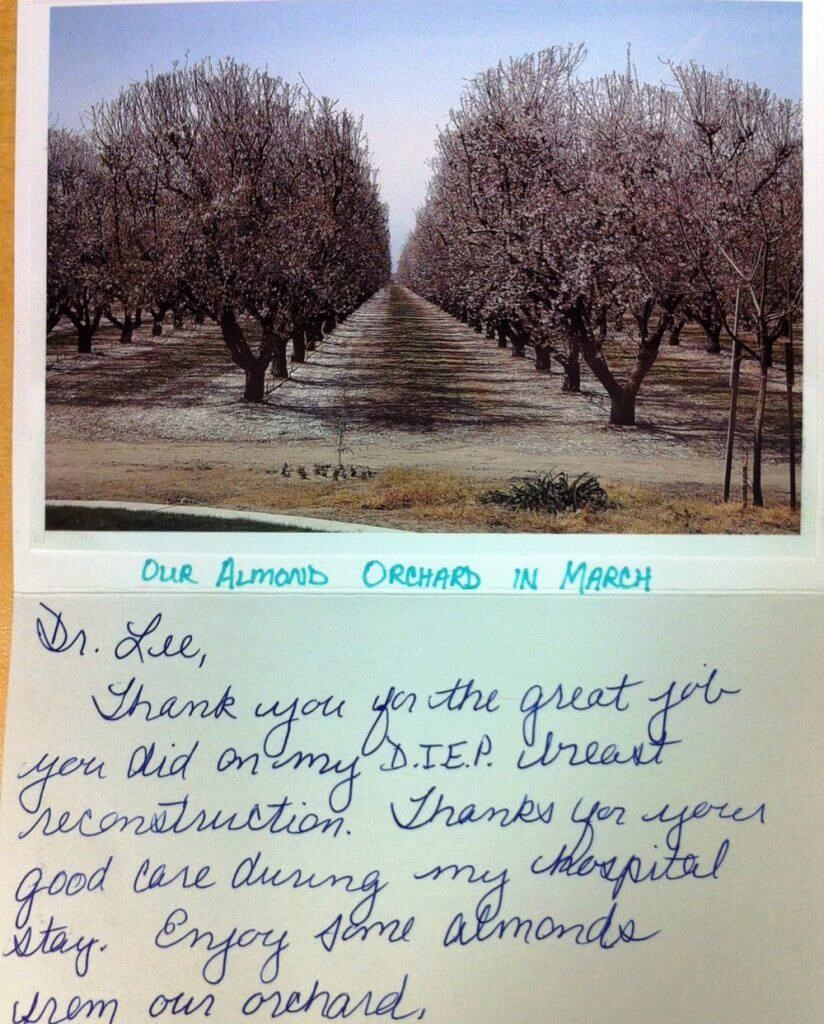 OUR ALMOND ORCHARD IN MARCH
Dr. Lee,
Thank you for the great job
you did on my D.I.E.P. breast
reconstruction. Thanks for your
good care during my hospital
stay. Enjoy some almonds
from our orchard.